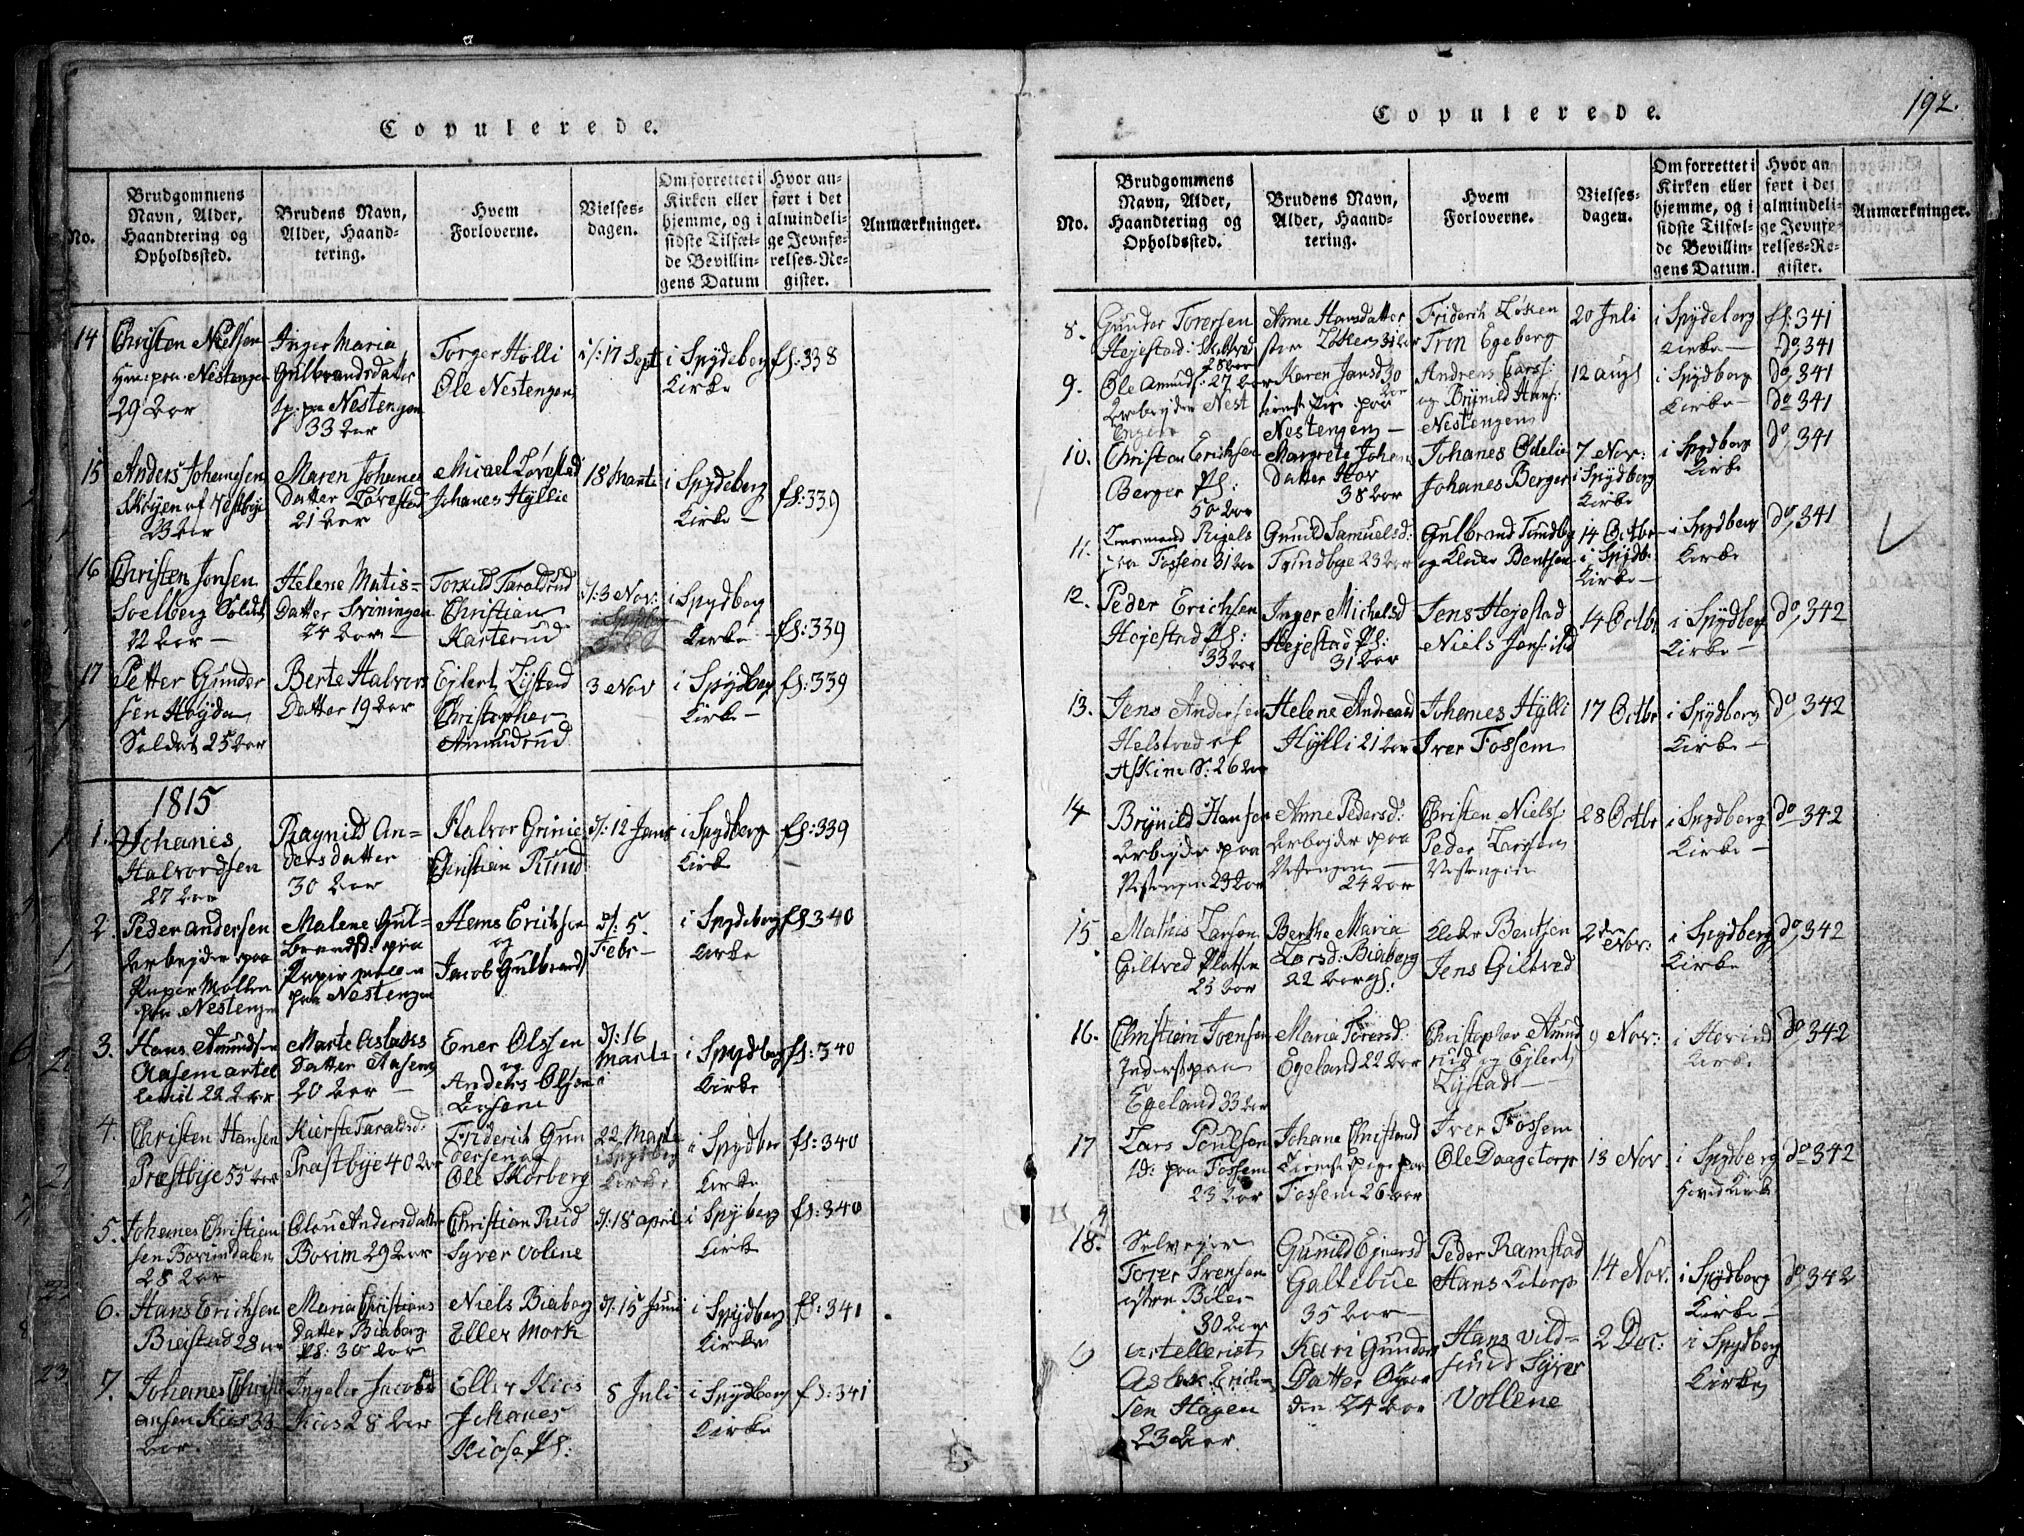 Copulerede.
No.
Brudgommens Navn, Alder, Haandtering og Opholdssted.
Brudens Navn, Alder, Haandtering.
Hvem Forloverne.
Vielsesdagen.
Om forrettet i Kirken eller hjemme, og i sidste Tilfælde Bevillingens Datum
Hvor anført i det almindelige Jevnførelses-Register.
Anmærkninger.
14
Christen Nielsen
paa Nestengen
29 aar
Inger Maria
Gulbrandsdatter
paa Nestengen
33 aar
Torger Hølli
Ole Nestengen
17 Sept
i Spydeberg
Kirke
fs: 338
15
Anders Johannesen
Skøyen af Vestbye
23 aar
Maren Johannes
Datter Løvestad
21 aar
Micael Løvestad
Johanes Hyllie
18 Marti
i Spydeberg
Kirke
fs: 339
16
Christen Jonsen
Soelberg Soldat
22 aar
Helene Matis-
Datter Sveningen
24 aar
Torkild Taraldrud
Christian
Kasterud
3 Nov:
i Spydberg
Kirke
fs: 339
17
Petter Gunder
sen Høyda
Soldat 25 aar
Berte Halvors
Datter 19 aar
Ejlert Lystad
Christopher
Amundrud
3 Nov
i Spydberg
Kirke
fs: 339
1815
1.
Johanes
Halvordsen
27 aar
Ragnild An-
dersdatter
30 aar
Halvor Grinie
Christian Ruud
12 Jan
i Spydberg
Kirke
fs: 339
2.
Peder Andersen
Arbejder paa
Paper Møllen
paa Nestengen
Malene Gul-
brandsd: paa
Papermøllen
paa Nestengen
Hans Erichsen
og
Jacob Gulbrands
5.
Febr
i Spydeberg
Kirke
fs 340
3.
Hans Amundsen
Aasem artel
lerist 22 aar
Marte Aslacks
Datter Aasem
20 aar
Ener Olssen
og
Anders Olsen
16
Marti
i Spydberg
Kirke
fs: 340
4.
Christen Hansen
Præstbye 55 aar
Kierste Taraldsd:
Præstbye 40 aar
Friderich Gun
dersen og
Ole Skorberg
22 Marti
i Spydberg
Kirke
i Spydber
Kirke
fs: 340
5.
Johanes Christian
sen Bovimdalen
28 aar
Olou Andersdatter
Bovim 29 aar
Christian Ruud
Syver Volene
18 april
i Spyberg
Kirke
fs: 340
6.
Hans Erichsen
28 aar
Maria Christians
Datter Biaberg
Ps: 30 aar
Niels Biaberg
Eller Mork
15 Juni
i Spydberg
Kirke
fs: 341
7.
Johanes Christi
ansen Kios 33
aar.
Ingebor Jacobsd
Kios 28 aar
Eller Kios
Johanes
Kiose Ps:
8 Juli
i Spydberg
Kirke
fs: 341
192.
Copulerede.
No.
Brudgommens Navn, Alder, Haandtering og Opholdssted.
Brudens Navn, Alder, Haandtering.
Hvem Forloverne.
Vielsesdagen.
Om forrettet i Kirken eller hjemme, og i sidste Tilfælde Bevillingens Datum.
Hvor anført i det almindelige Jevnførelses-Register.
Anmærkninger.
8.
Gunder Torersen
Hejestad i Skibtved
28 aar
Anne Hansdatter
Løken 31 aar
Friderik Løken
Tron Egeberg
20 Juli
i Spydeberg
Kirke
fs: 341
do 341
9.
Ole Amunds: 27 aar
Arbejder Nest
Engen
Karen Jansd 30
aar
tienste Pige paa
Nestengen
Andreas Lars:
og Brynild Hans:
Nestengen
12 aug
i Spydberg
Kirke
do 341
do 341
10.
Christen Erichsen
Berger Ps:
50 aar
Margrete Johans
Datter Hov
38 aar
Johanes Ødelie
Johanes Berger
7 Nov:
i Spydberg
Kirke
i Spydberg
Kirke
do 341
11.
paa Fossem 31 aar
Gunild Samuelsd:
Tundbye 23 aar
Gulbrand Tundby
og Bentsen
14 Octbr
i Spydb:
Kirke
i Spydberg
Kirke
do 341
12.
Peder Erichsen
Hejestad Ps:
33 aar
Inger Michelsd
Hejestad Ps:
31 aar
Jens Hejestad
Niels Jens:
14 Octbr
i Spydberg
Kirke
do 342
13.
Jens Andersen
Helstved af
Askim S: 26 aar
Helene Andreas
Hylli 21 aar
Johanes Hylli
Iver Fossem
17 Octbr
i Spydberg
Kirke
do 342
14
Brynild Hansen
Arbejder paa
Nestengen 23 aar
Anne Pedersd:
Arbejder paa
Nestengen
24 aar
Christen Niels:
Peder Larssen
Nestengen
28 Octbr
i Spydberg
Kirke
do 342
15.
Mathis Larsen
Giltved Platsen
23 aar
Berthe Maria
Larsd: Biaberg
22 aar
Bentsen
Jens Giltved
2den Nov:
i Spydberg
Kirke
do 342
16.
Christian Joensen
Inderst paa
Egeland 33 aar
Maria Torersd:
Egeland 22 aar
Christopher Amund
rud og Ejlert
Lystad
9 Nov:
i Hovind
Kirke
do 342
17
Lars Poulsen
paa Fossem
23 aar
Johane Christensd
tienste pige paa
Fossem 26 aar
Iver Fossem
Ole Daagetorp
13 Nov
i Spydberg
Hovid Kirke
do 342
18.
Selveger
Torer Svensen
østre Biler
30 aar
Gunild Ejnersd
Galtebue
35 aar
Peder Ramstad
Hans
14 Nov:
i Spydberg
Kirke
do 342
artellerist
Aslak Erich-
sen Hagen
23 aar
Kari Gunders
Datter
24 aar
Hans Vild-
Syver
Vollene
2 Dec:
i Spydberg
Kirke